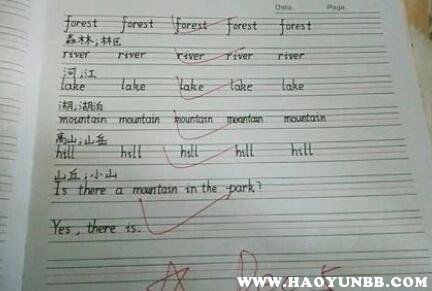 Date. Page.
forest forest forest forest forest
森林;林区
river river river river river
河;江
lake lake lake lake lake
湖,湖泊
mountain mountain mountain meantain mountain
高山;山岳
hill hill hill hill hill
山丘;小山
Is there a mountain in the park?
Yes, there is.
www.HAOYUNBB.com